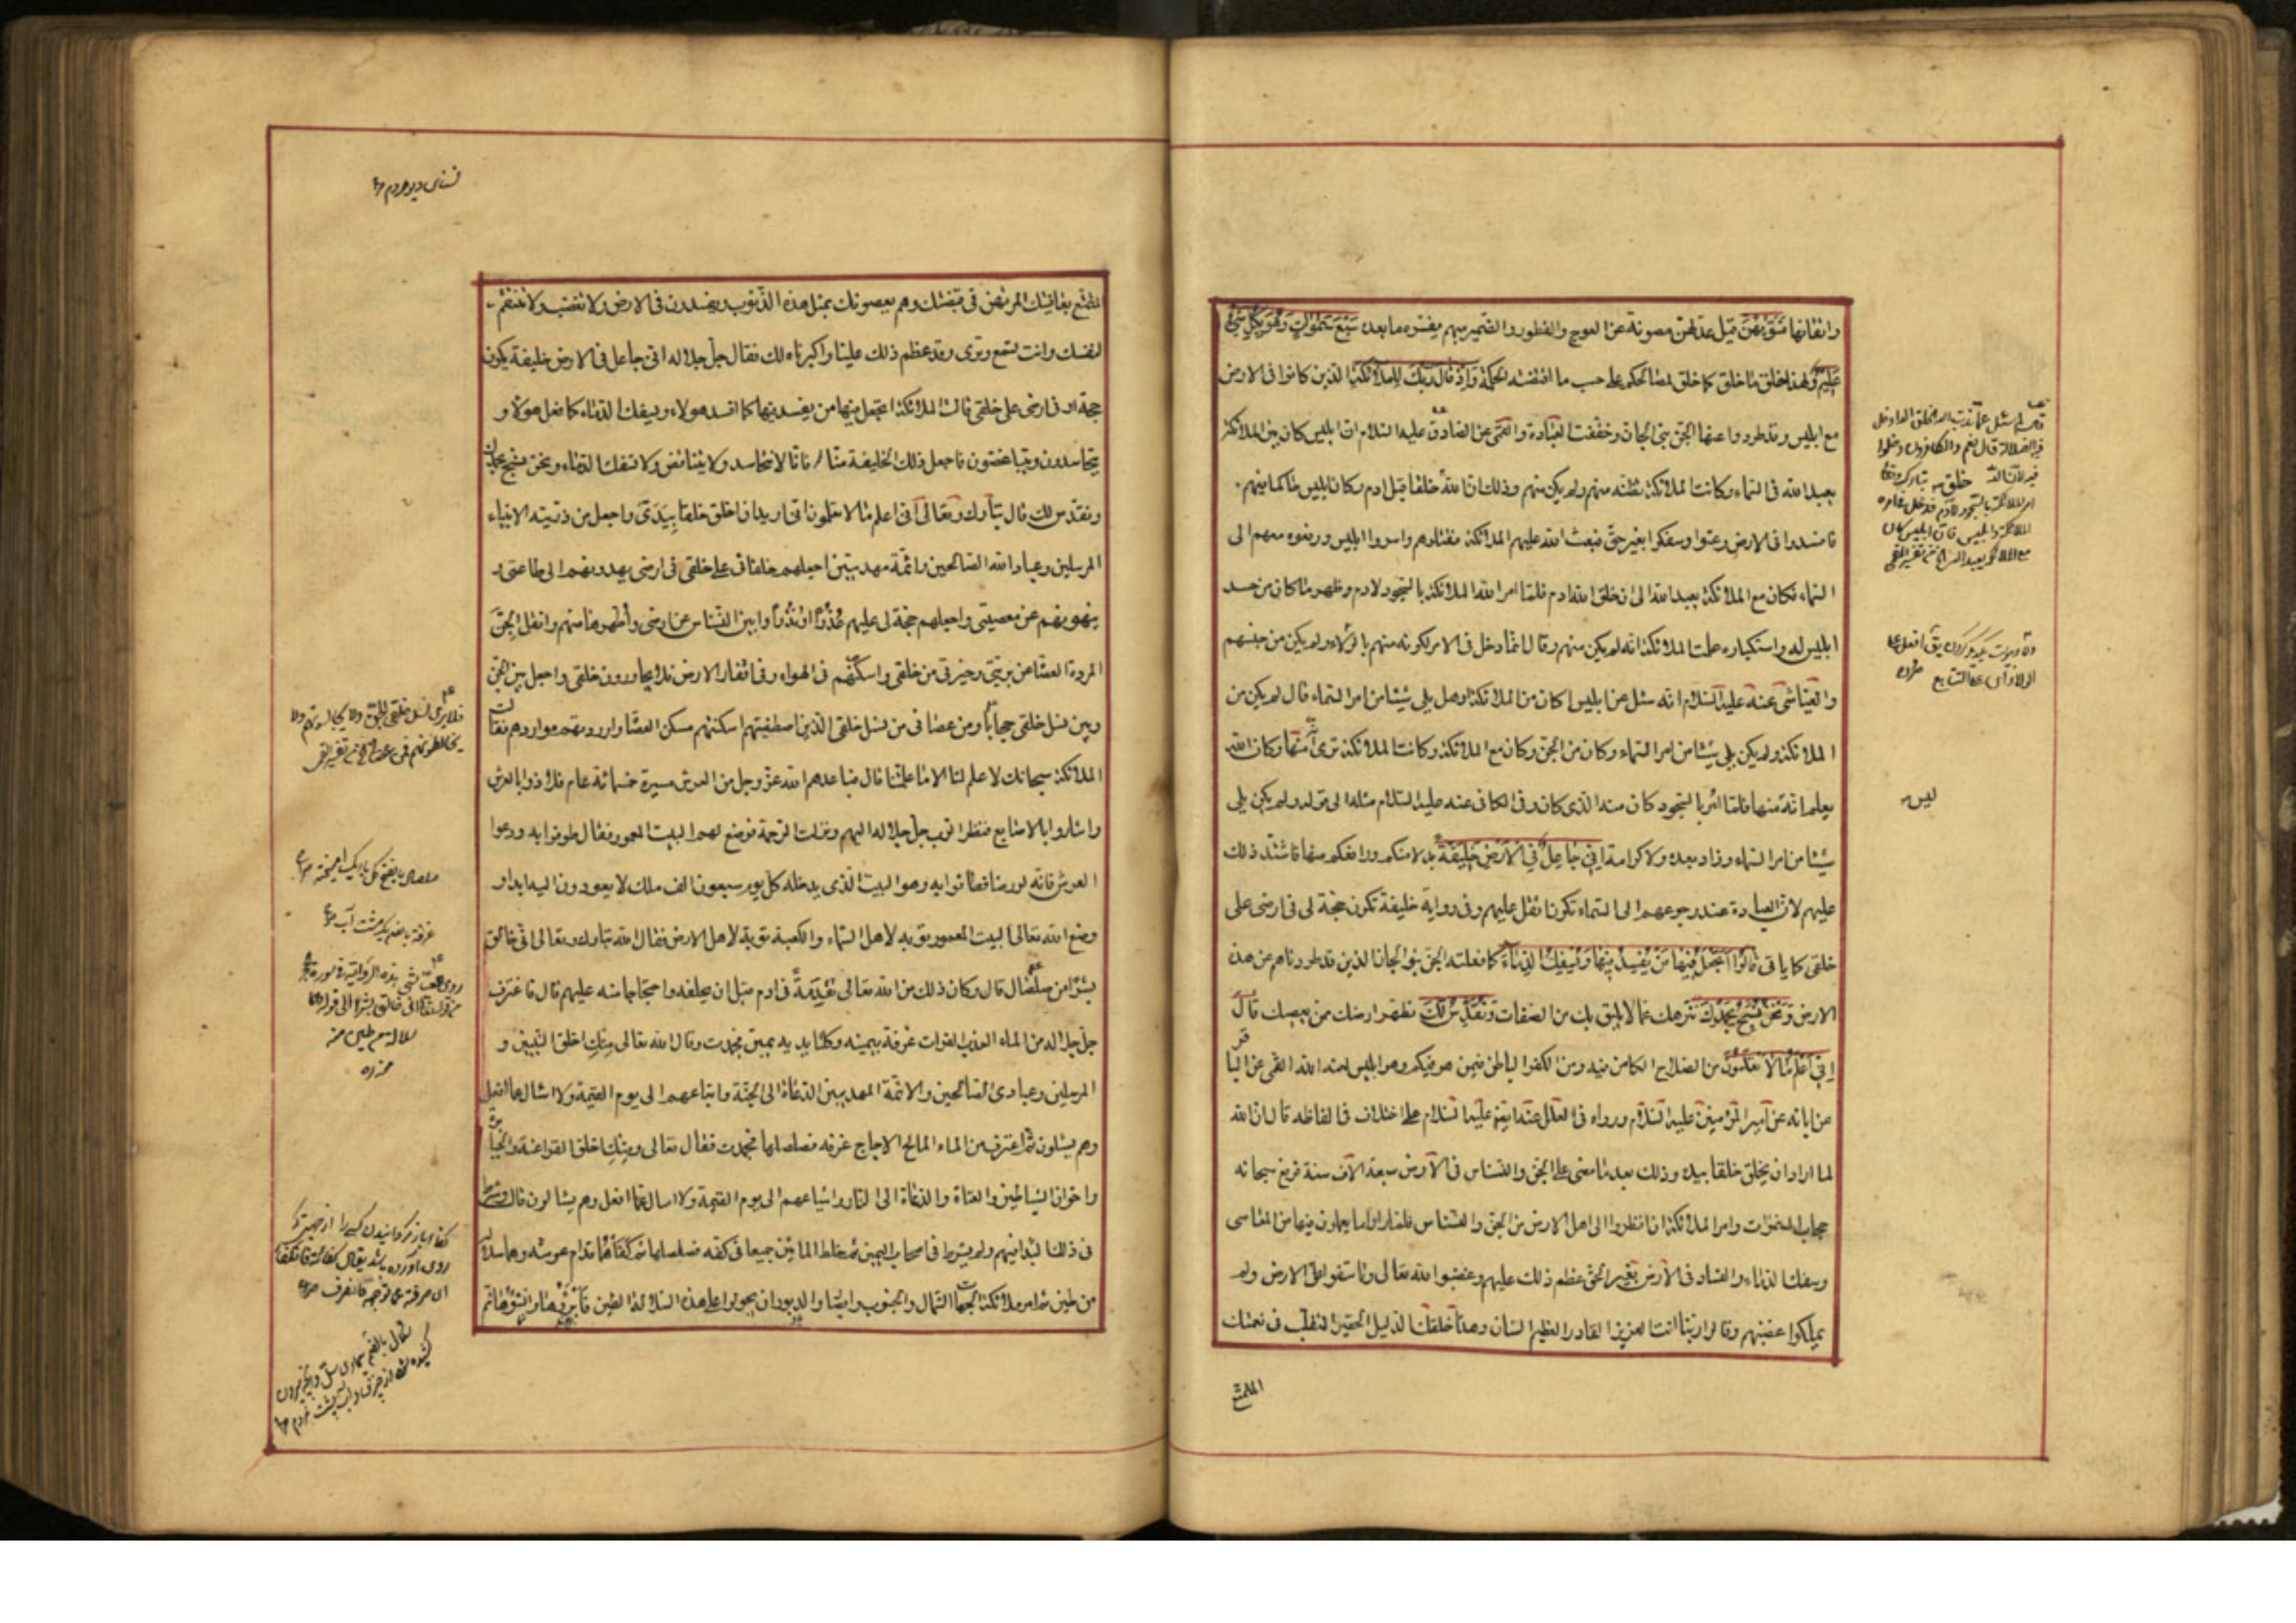 واتقانها فسَوّيهُنَّ قيل عدلهن مصونة عن العوج والفطور والضمير مبهم يفسّره ما بعده سَبْعَ سَمٰوٰاتٍ وَهُوَ بِكُلِّ شَيْءٍ
عَلِيمٌ ولهذا خلق ما خلق كما خلق لمصالحكم على حسب ما اقتضته الحكمة وَاِذْ قٰالَ رَبُّكَ لِلْمَلٰائِكَةِ الذين كانوا فى الارض
مع ابليس وقد طردوا عنها الجن بنى الجان وخففت العبادة والقمى عن الصادق عليه السلام ان ابليس كان بين الملائكة
يعبد الله فى السماء وكانت الملائكة تظنه منهم ولم يكن منهم وذلك ان الله خلق خلقا قبل ادم وكان ابليس حاكما فيهم
فافسدوا فى الارض وعتوا وسفكوا بغير حق فبعث الله عليهم الملائكة فقتلوهم واسروا ابليس ورفعوه معهم الى
السماء فكان مع الملائكة يعبد الله الى ان خلق الله ادم فلمّا امر الله الملائكة بالسجود لادم وظهر ما كان من حسد
ابليس له واستكباره علمت الملائكة انه لم يكن منهم وقال انما دخل فى الامر لكونه منهم بالولاء ولم يكن من جنسهم
والعياشى عنه عليه السلام انه سئل عن ابليس اكان من الملائكة او هل يلى شيئا من امر السماء قال لم يكن من
الملائكة ولم يكن يلى شيئا من امر السماء وكان من الجن وكان مع الملائكة وكانت الملائكة ترى انه منها وكان الله
يعلم انه منها فلمّا امر بالسجود كان منه الذى كان وفى الكافى عنه عليه السلام مثله الى قوله ولم يكن يلى
شيئا من امر السماء وزاد بعده ولا كرامة اِنّى جٰاعِلٌ فِى الْاَرْضِ خَلِيفَةً بدلا منكم ورافعكم منها فاشتد ذلك
عليهم لان العبادة عند رجوعهم الى السماء تكون اثقل عليهم وفى رواية خليفة تكون حجة لى فى ارضى على
خلقى كما ياتى قٰالُوا اَتَجْعَلُ فِيهٰا مَنْ يُفْسِدُ فِيهٰا وَيَسْفِكُ الدِّمٰاءَ كما فعلته الجن بنو الجان الذين قد طردناهم عن هذه
الارض وَنَحْنُ نُسَبِّحُ بِحَمْدِكَ ننزهك عما لا يليق بك من الصفات وَنُقَدِّسُ لَكَ نطهر ارضك ممن يعصيك قٰالَ
اِنّى اَعْلَمُ مٰا لٰا تَعْلَمُونَ من الصلاح الكامن فيه ومن الكفر الباطن فيمن هو فيكم وهو ابليس لعنه الله القمى عن الباقر
عن ابائه عن امير المؤمنين عليه السلام ورواه فى العلل عنه ايضا عليه السلام على اختلاف فى الفاظه قال ان الله
لما اراد ان يخلق خلقا بيده وذلك بعد ما مضى على الجن والنسناس فى الارض سبعة الاف سنة فرفع سبحانه
حجاب السموات وامر الملائكة ان انظروا الى اهل الارض من الجن والنسناس فلما راوا ما يعملون فيها من المعاصى
وسفك الدماء والفساد فى الارض بغير الحق عظم ذلك عليهم وغضبوا لله تعالى وتاسفوا على الارض ولم
يملكوا غضبهم وقالوا ربنا انت العزيز القادر العظيم الشان وهذا خلقك الذليل الحقير المتقلب فى نعمتك
ليس
المتمتع
المتمتع بعافيتك المرتهن فى قبضتك وهم يعصونك بمثل هذه الذنوب ويفسدون فى الارض ولا تغضب ولا تنتقم
لنفسك وانت تسمع وترى وقد عظم ذلك علينا واكبرناه لك فقال جلّ جلاله انى جاعل فى الارض خليفة يكون
حجة لى فى ارضى على خلقى قالت الملائكة اتجعل فيها من يفسد فيها كما افسد هولاء ويسفك الدماء كما فعل هولاء و
يتحاسدون ويتباغضون فاجعل ذلك الخليفة منّا فانا لا نتحاسد ولا نتباغض ولا نسفك الدماء ونحن نسبح بحمدك
ونقدس لك قال تبارك وتعالى انى اعلم ما لا تعلمون انى اريد ان اخلق خلقا بيدى واجعل من ذريته الانبياء
المرسلين وعباد الله الصالحين وائمة مهديين اجعلهم خلفائى على خلقى فى ارضى يهدونهم الى طاعتى و
ينهونهم عن معصيتى واجعلهم حجة لى عليهم عُذْرًا اَوْ نُذْرًا وابين النسناس عن ارضى واطهرها منهم وانقل الجن
المردة العصاة من بريتى وخيرتى من خلقى واسكنهم فى الهواء وفى اقفار الارض فلا يجاورون خلقى واجعل بين الجن
وبين نسل خلقى حجابا ومن عصانى من نسل خلقى الذين اصطفيتهم اسكنتهم مسكن العصاة واوردتهم مواردهم فقالت
الملائكة سبحانك لا علم لنا الا ما علمتنا قال فباعدهم الله عزّ وجل من العرش مسيرة خمسمائة عام فلاذوا بالعرش
واشاروا بالاصابع فنظر الرب جلّ جلاله اليهم ونزلت الرحمة فوضع لهم البيت المعمور فقال طوفوا به ودعوا
العرش فانه لى رضا فطافوا به وهو البيت الذى يدخله كل يوم سبعون الف ملك لا يعودون اليه ابدا و
وضع الله تعالى البيت المعمور توبة لاهل السماء والكعبة توبة لاهل الارض فقال الله تبارك وتعالى انى خالق
بشرا من صلصال قال وكان ذلك من الله تعالى تقدمةً فى ادم قبل ان يخلقه واحتجاجا منه عليهم قال فاغترف
جل جلاله من الماء العذب الفرات غرفة بيمينه وكلتا يديه يمين فجمدت وقال الله تعالى منك اخلق النبيين و
المرسلين وعبادى الصالحين والائمة المهديين الدعاة الى الجنة واتباعهم الى يوم القيمة ولا اسال عما افعل
وهم يسئلون ثمّ اغترف من الماء المالح الاجاج غرفة فصلصلها فجمدت فقال تعالى ومنك اخلق الفراعنة والجبابرة
واخوان الشياطين والعتاة والدعاة الى النار واشياعهم الى يوم القيمة ولا اسال عما افعل وهم يسالون قال وشرط
فى ذلك البداء فيهم ولم يشرط فى اصحاب اليمين ثم خلط المائين جميعا فى كفه فصلصلهما ثم كفأهما قدام عرشه وهما سلالة
من طين ثم امر ملائكة الجهات الشمال والجنوب والصبا والدبور ان يجولوا على هذه السلالة الطين